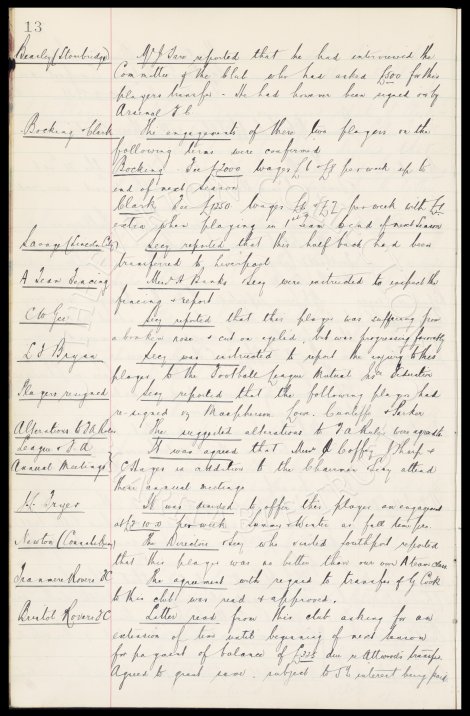 13
Beasley (Stourbridge) Mr J Sare reported that he had interviewed the
Committee of the Club who had asked £300 for this
players transfer - He had however been signed on by
Arsenal F C
Bocking & Clark The engagements of these two players on the
following terms were confirmed
Bocking Fee £2000 wages £6 & £8 per week up to
end of next season
Clark Fee £1350 wages £6 & £7 per week with £1
extra when playing in 1st team to end of next season
Savage (Lincoln City) Secy reported that this half back had been
transferred to Liverpool
A Team Fencing Messrs A Banks Secy were instructed to inspect the
fencing & report
C W Gee Secy reported that this player was suffering from
a broken nose & cut on eyelid, but was progressing favourably
Secy was instructed to report the injury to this
player to the Football League Mutual
Players resigned Secy reported that the following players had
re-signed viz Macpherson Low, Cunliffe & Parker
Alterations to F A Rules The suggested alterations to F A Rules were agreed to
League & F. A It was agreed that Messrs Coffey, J Sharp &
Annual Meetings in addition to the Chairman Secy attend
these annual meetings
It was decided to offer this player an engagement
at £7-10-0 per week Summer & Winter as full
Newton The Directors Secy who visited Southport reported
that this player was no better than our own A team class
Tranmere Rovers FC The agreement with regard to transfer of G Cook
to this club was read & approved.
Bristol Rovers FC Letter read from this club asking for an
extension of time until beginning of next season
for payment of balance of £335 due re Attwoods transfer
Agreed to grant same subject to 5% interest being paid